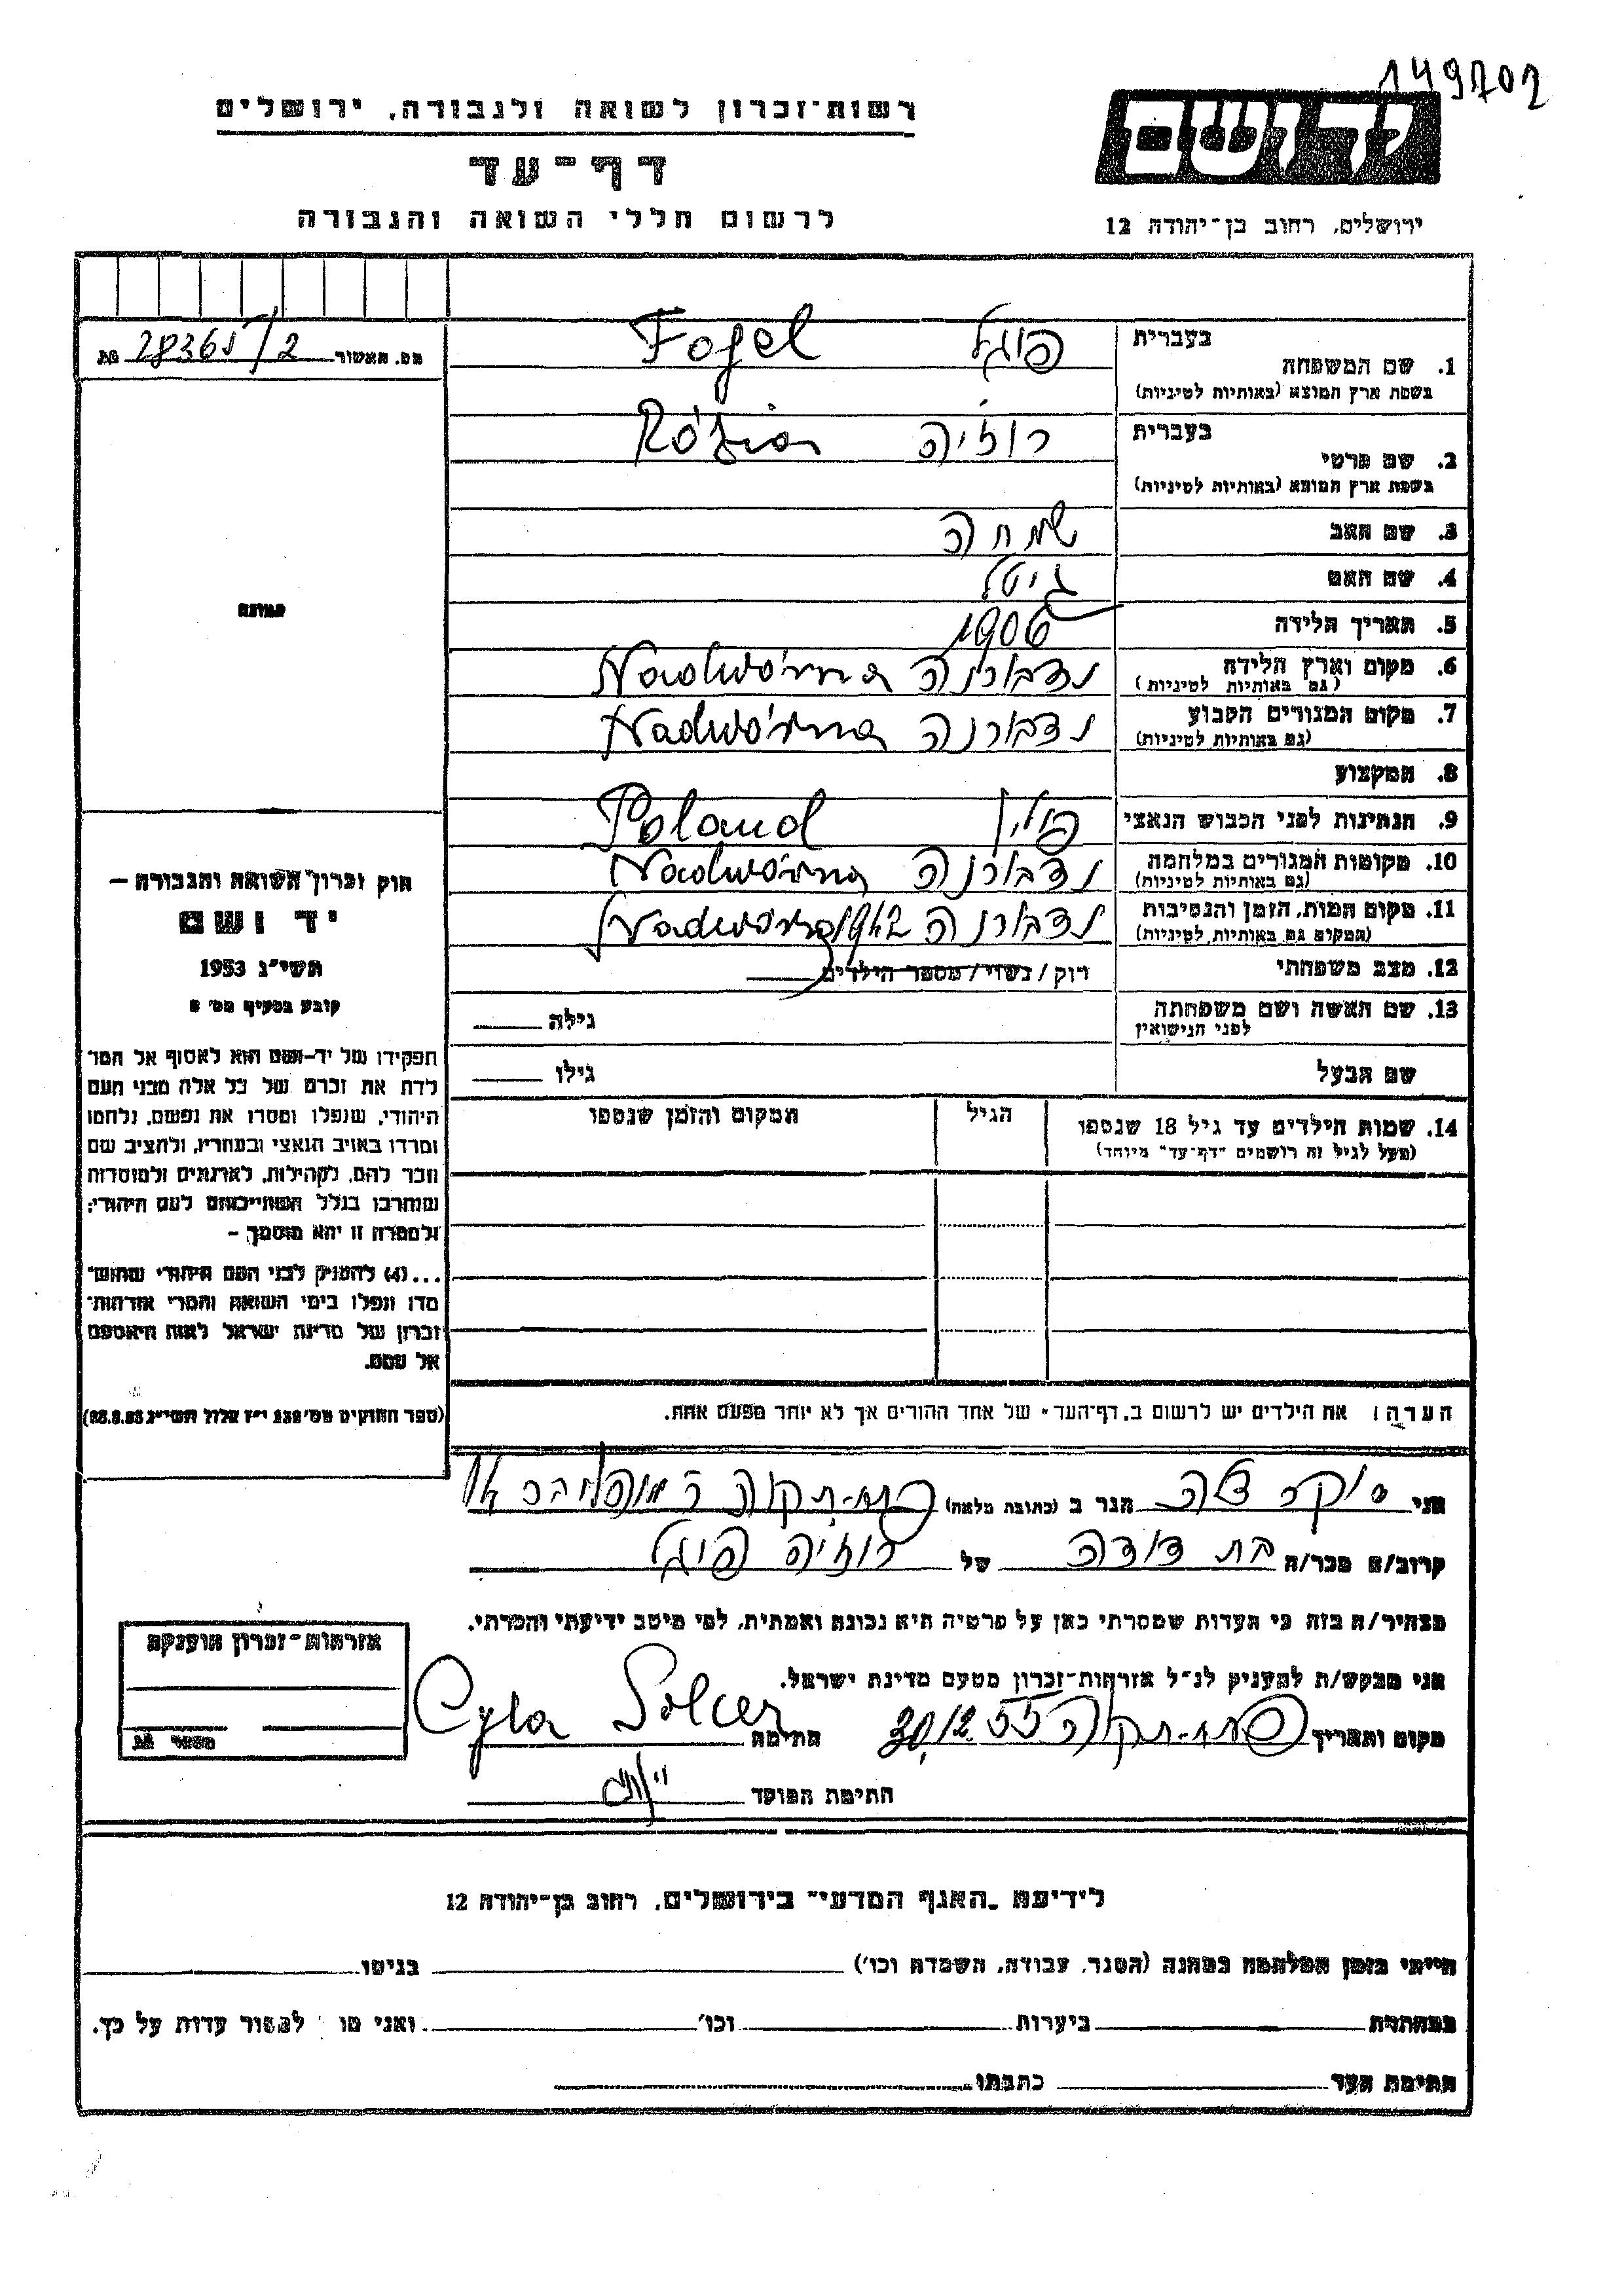 149702
ידושם
רשות־זכרון לשואה ולגבורה, ירושלים
דף־עד
לרשום חללי השואה והגבורה
ירושלים, רחוב בן־יהודה 12
מס. האשור 28365/2 №
בעברית
1. שם המשפחה פוגל Fogel
בשפת ארץ המוצא (באותיות לטיניות)
בעברית
2. שם פרטי רוזיה Rózia
בשפת ארץ המוצא (באותיות לטיניות)
3. שם האב שמחה
4. שם האם גיטל
5. תאריך הלידה 1906
6. מקום וארץ הלידה נדבורנה Nadwórna
(גם באותיות לטיניות)
7. מקום המגורים הקבוע נדבורנה Nadwórna
(גם באותיות לטיניות)
8. המקצוע
9. הנתינות לפני הכבוש הנאצי פולין Poland
10. מקומות המגורים במלחמה נדבורנה Nadwórna
(גם באותיות לטיניות)
11. מקום המות, הזמן והנסיבות נדבורנה 1942 Nadwórna
(המקום גם באותיות לטיניות)
12. מצב משפחתי רווק / נשוי / מספר הילדים
13. שם האשה ושם משפחתה גילה
לפני הנישואין
שם הבעל גילו
14. שמות הילדים עד גיל 18 שנספו הגיל המקום והזמן שנספו
(מעל לגיל זה רושמים "דף־עד" מיוחד)
הערה: את הילדים יש לרשום ב"דף־העד" של אחד ההורים אך לא יותר מפעם אחת.
תמונה
חוק זכרון השואה והגבורה –
יד ושם
תשי"ג 1953
קובע בסעיף מס' 2
תפקידו של יד-ושם הוא לאסוף אל המו־
לדת את זכרם של כל אלה מבני העם
היהודי, שנפלו ומסרו את נפשם, נלחמו
ומרדו באויב הנאצי ובעוזריו, ולהציב שם
וזכר להם, לקהילות, לארגונים ולמוסדות
שנחרבו בגלל השתייכותם לעם היהודי;
ולמטרה זו יהא מוסמך –
...(4) להעניק לבני העם היהודי שהוש־
מדו ונפלו בימי השואה והמרי אזרחות־
זכרון של מדינת ישראל לאות היאספם
אל עמם.
(ספר החוקים מס' 132 י"ז אלול תשי"ג 28.8.53)
אני צלה הגר ב (כתובת מלאה) פתח-תקוה
קרוב/ה מכר/ה בת דודה של רוזיה פוגל
מצהיר/ה בזה כי העדות שמסרתי כאן על פרטיה היא נכונה ואמתית, לפי מיטב ידיעתי והכרתי.
אני מבקש/ת להעניק לנ"ל אזרחות־זכרון מטעם מדינת ישראל.
מקום ותאריך פתח-תקוה 30.12.55 חתימה Cyla Solcer
חתימת הפוקד
אזרחות־זכרון הוענקה
מספר №
לידיעת "האגף המדעי" בירושלים, רחוב בן־יהודה 12
הייתי בזמן המלחמה במחנה (הסגר, עבודה, השמדה וכו') בגיטו
במחתרת ביערות וכו' ואני לעסור עדות על כך.
חתימת העד כתבתו